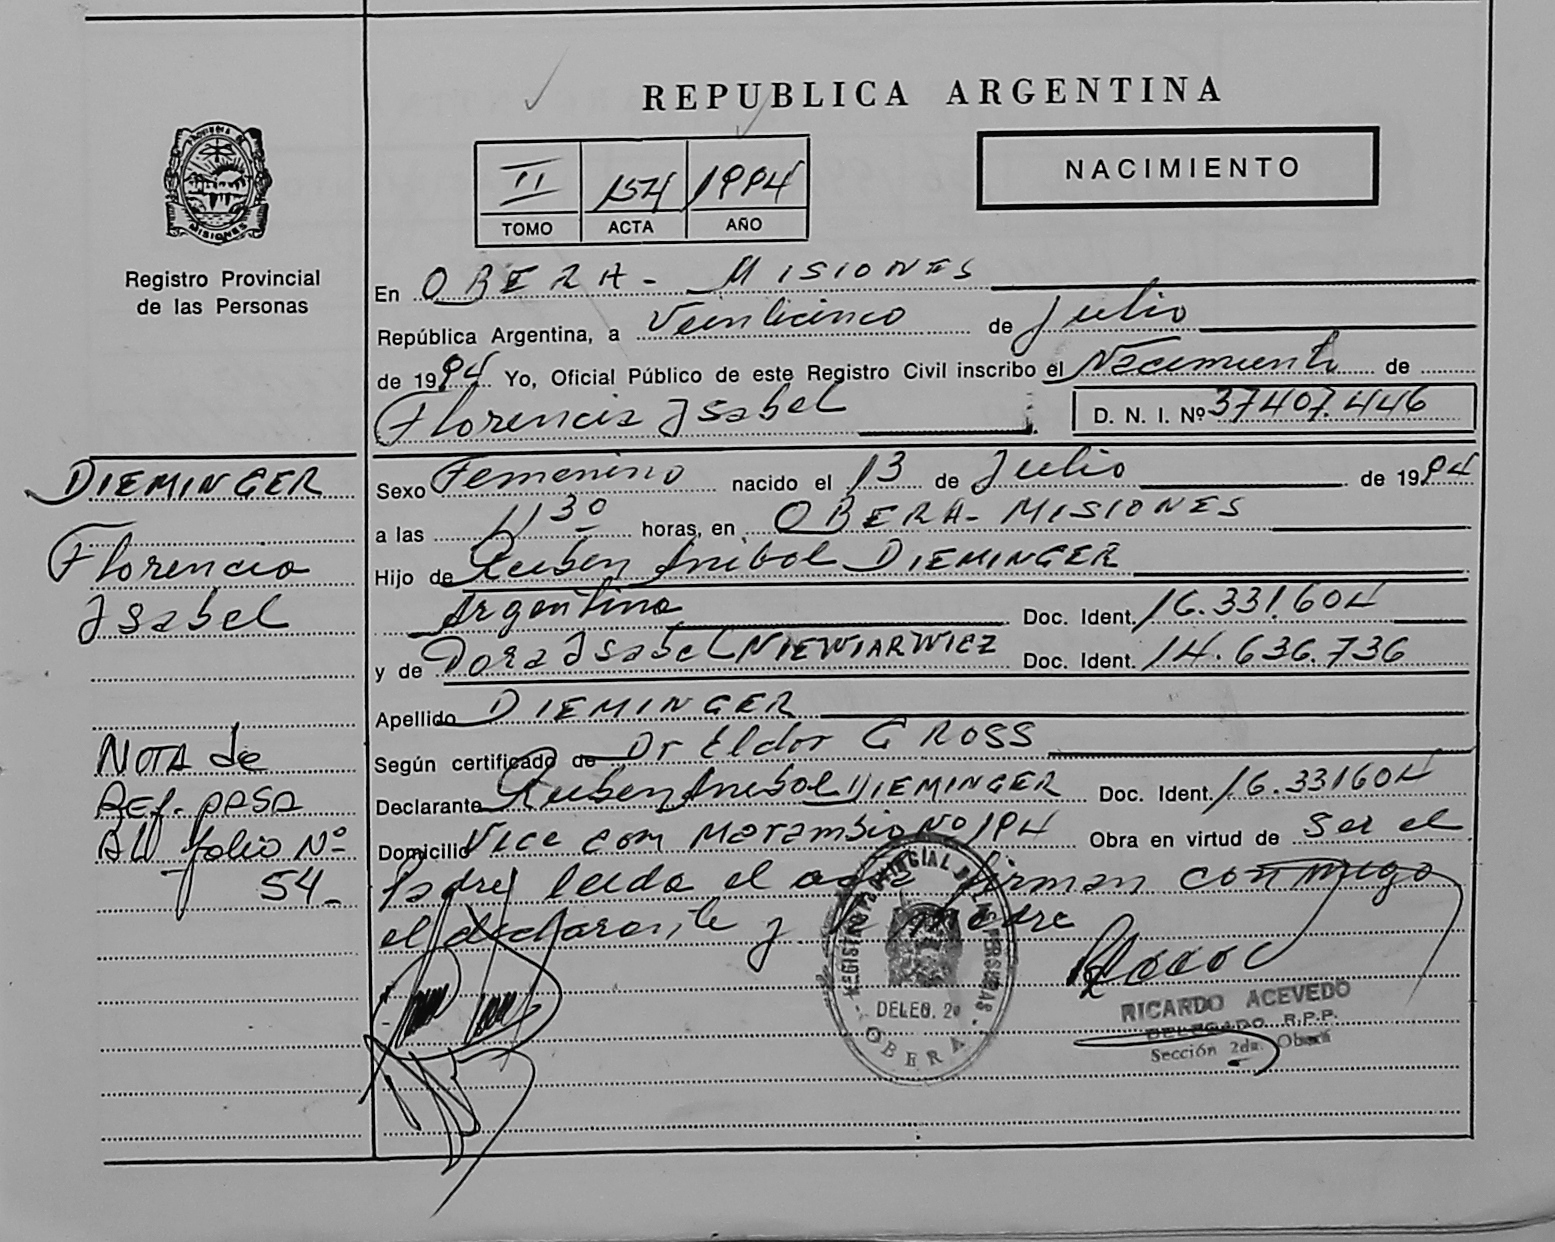 REPUBLICA ARGENTINA
NACIMIENTO
II 154 1994
TOMO ACTA AÑO
PROVINCIA DE MISIONES
Registro Provincial
de las Personas
En OBERA - MISIONES
República Argentina, a Veinticinco de Julio
de 1994 Yo, Oficial Público de este Registro Civil inscribo el Nacimiento de
Florencia Isabel D. N. I. Nº 37407.446
DIEMINGER
Florencia
Isabel
Sexo Femenino nacido el 13 de Julio de 1994
a las 11 30 horas, en OBERA - MISIONES
Hijo de Ruben Anibal DIEMINGER
Argentina Doc. Ident. 16.331604
y de Dora Isabel NIEWIARWICZ Doc. Ident. 14.636.736
Apellido DIEMINGER
Según certificado de Dr Eldor GROSS
Declarante Ruben Anibal DIEMINGER Doc. Ident. 16.331604
Domicilio Vice com Marambio Nº 194 Obra en virtud de ser el
Padre leida el acta firman conmigo
el declarante y la madre
NOTA de
REf. PASA
Al folio Nº
54_
REGISTRO PROVINCIAL DE LAS PERSONAS
DELEG. 2a
OBERA
RICARDO ACEVEDO
DELEGADO R.P.P.
Sección 2da. Oberá